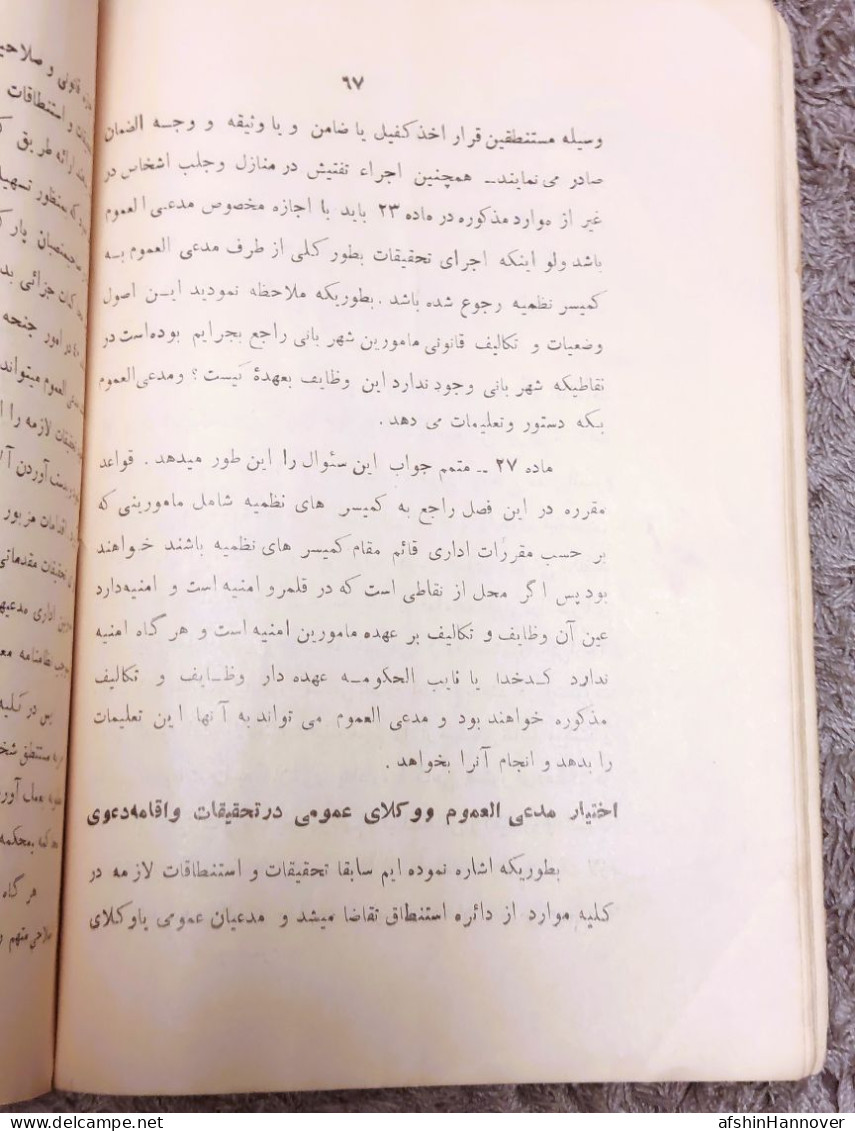 ۶۷
وسیله مستنطقین قرار اخذ کفیل یا ضامن و یا وثیقه و وجـه الضمان
صادر می نمایند ــ همچنین اجراء تفتیش در منازل وجلب اشخاص در
غیر از موارد مذکوره در ماده ۲۳ باید با اجازه مخصوص مدعی العموم
باشد ولو اینکه اجرای تحقیقات بطور کلی از طرف مدعی العموم بـه
کمیسر نظمیه رجوع شده باشد . بطوریکه ملاحظه نمودید ایـن اصول
وضعیات و تکالیف قانونی مامورین شهر بانی راجع بجرایم بوده است در
نقاطیکه شهر بانی وجود ندارد این وظایف بعهدهٔ کیست ؟ ومدعی‌العموم
بـکه دستور وتعلیمات می دهد .
ماده ۲۷ ــ متمم جواب این سئوال را این طور میدهد . قواعد
مقرره در این فصل راجع به کمیسر های نظمیه شامل مامورینی که
بر حسب مقررات اداری قائم مقام کمیسر های نظمیه باشند خواهند
بود پس اگر محل از نقاطی است که در قلمرو امنیه است و امنیه‌دارد
عین آن وظایف و تکالیف بر عهده مامورین امنیه است و هر گاه امنیه
ندارد کـدخدا یا نایب الحکومـه عهده دار وظـایف و تکالیف
مذکوره خواهند بود و مدعی العموم می تواند به آنها این تعلیمات
را بدهد و انجام آنرا بخواهد .
اختیار مدعی العموم ووکلای عمومی در تحقیقات واقامه‌دعوی
بطوریکه اشاره نموده ایم سابقا تحقیقات و استنطاقات لازمه در
کلیه موارد از دائره استنطاق تقاضا میشد و مدعیان عمومی یاوکلای
afshinHannover